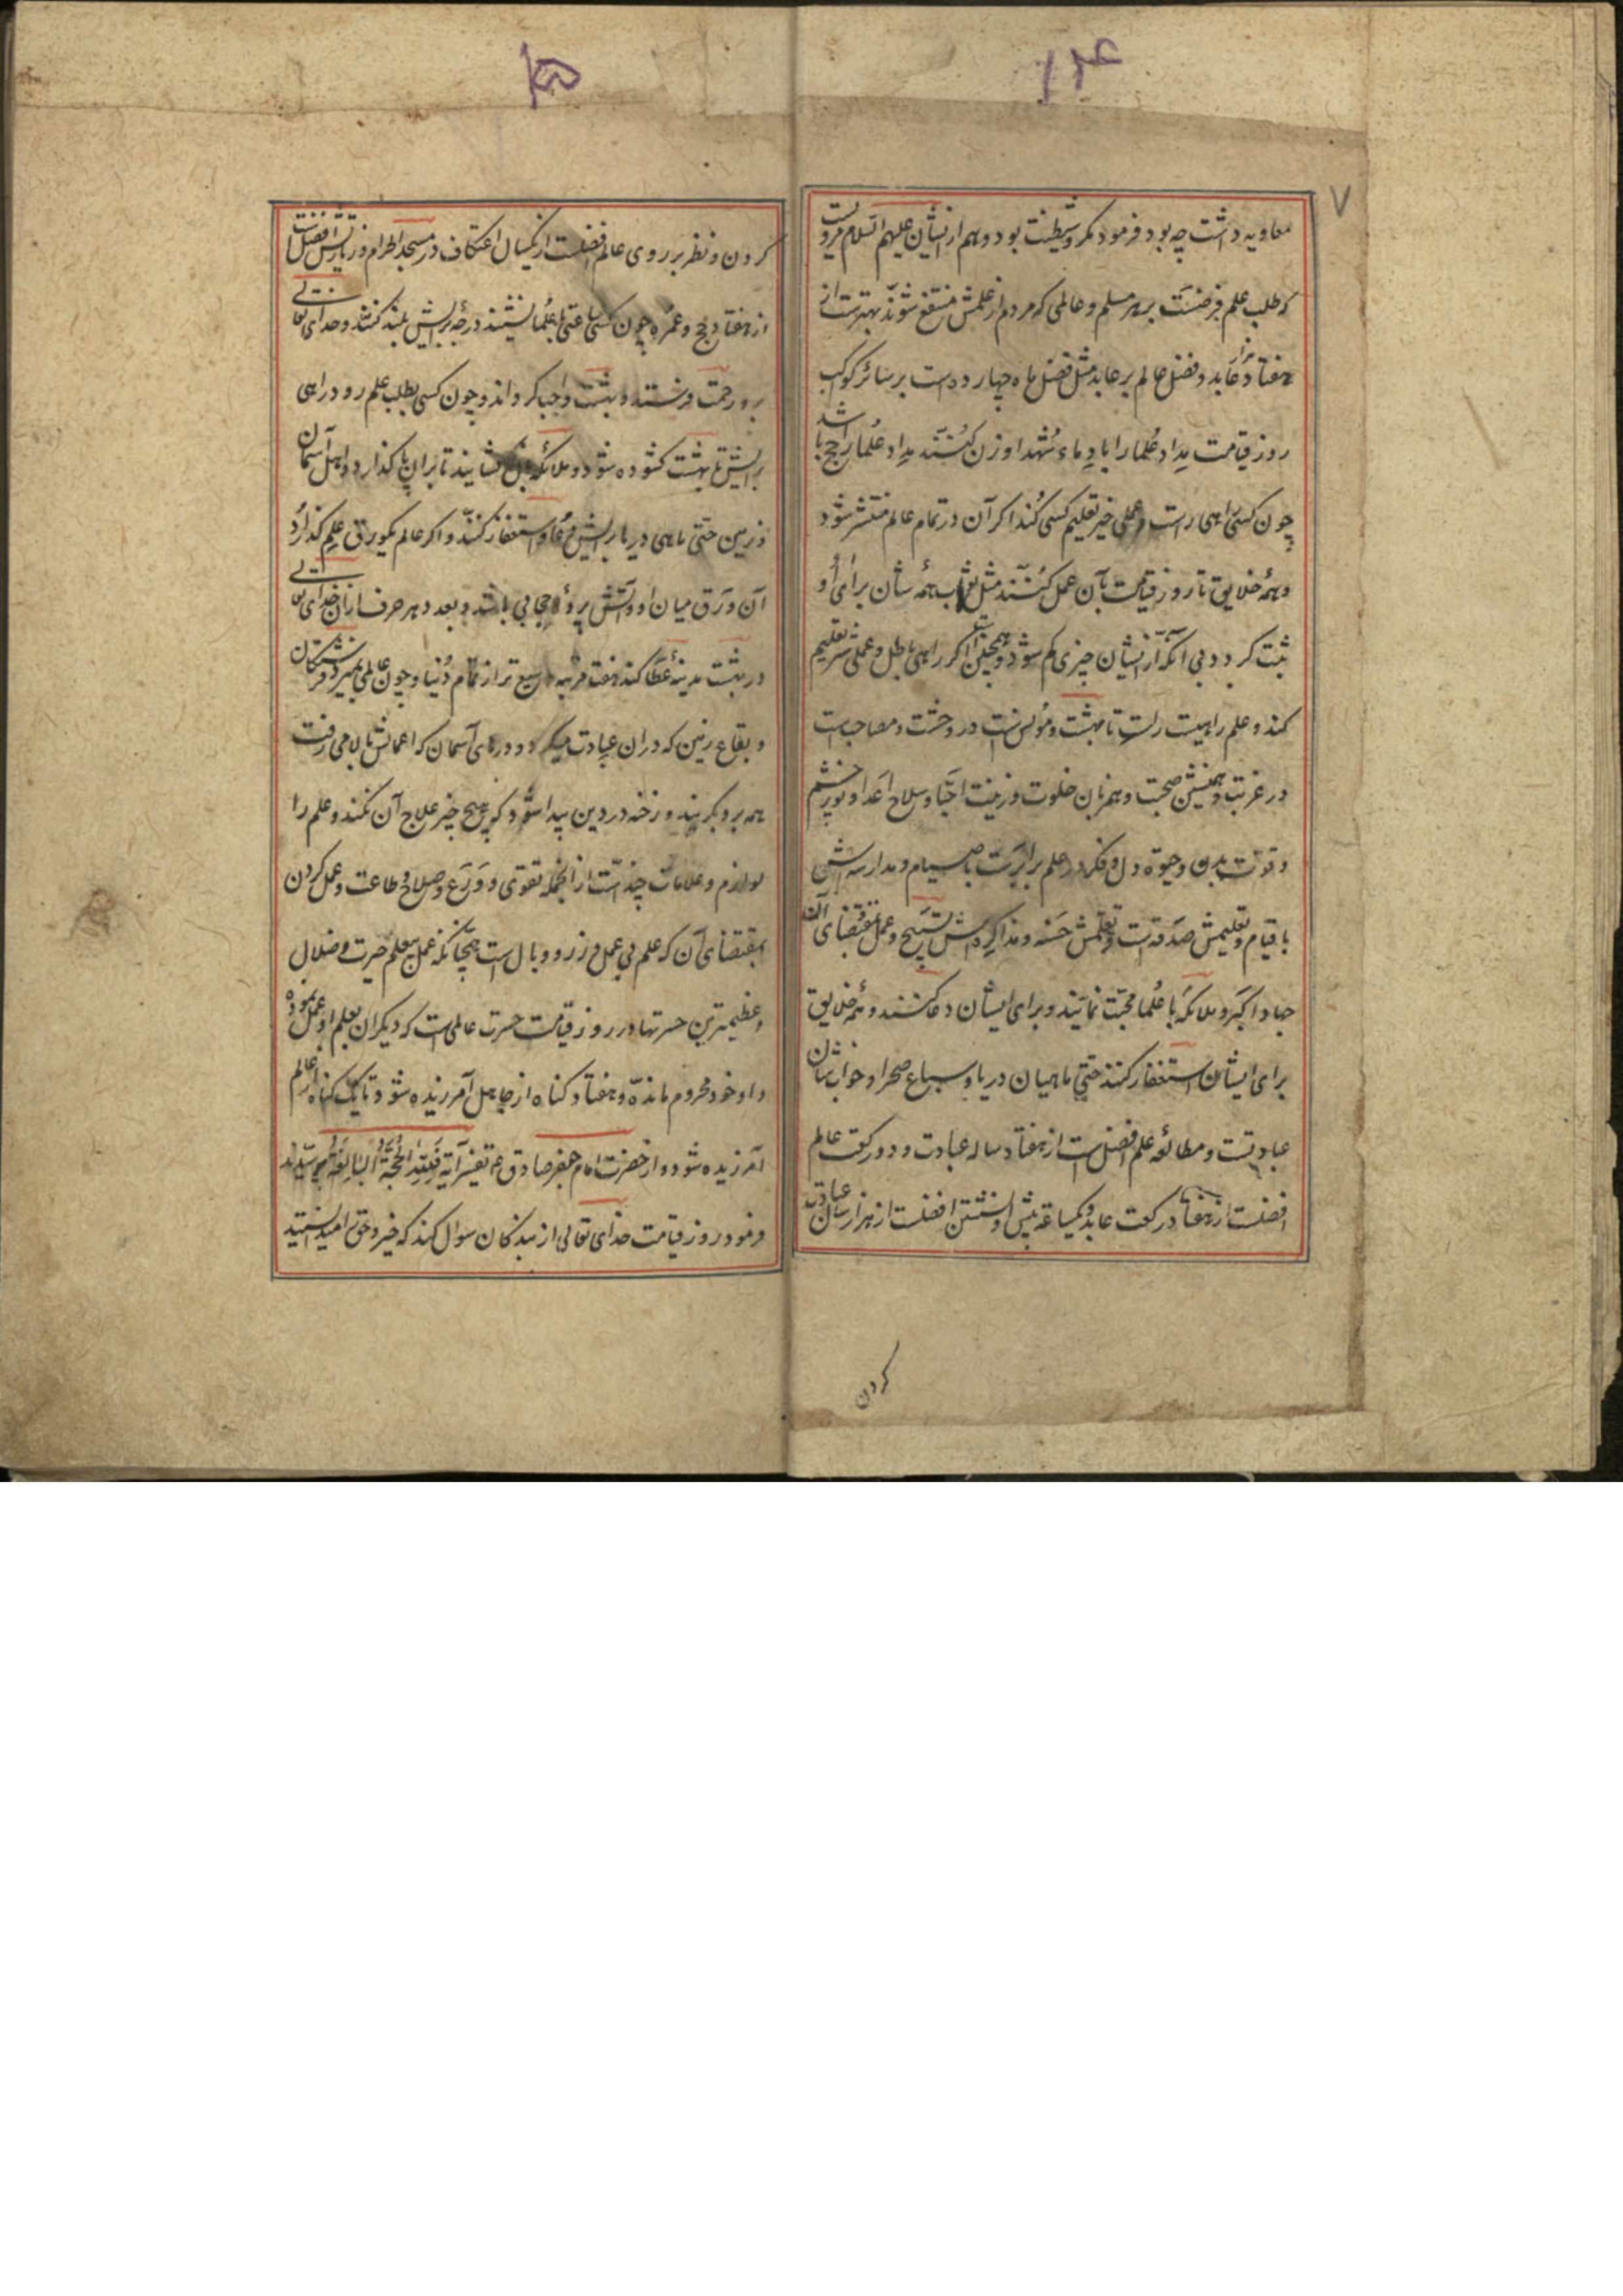 ۱۴
۷
معاویه داشت چه بود فرمود مکر و شیطنت بود و هم ازیشان علیهم السلام مرویست
که طلب علم فریضست بر هر مسلم و عالمی که مردم از علمش منتفع شوند بهترست از
هفتاد هزار عابد و فضل عالم بر عابد مثل فضل ماه چهارده است بر سائر کواکب
روز قیامت مداد علما را با دماء شهدا وزن کنند مداد علما راجح باشد
چون کسی راهی راست و عملی خیر تعلیم کسی کند اگر آن در تمام عالم منتشر شود
و همهٔ خلایق تا روز قیامت بآن عمل کنند مثل ثواب همه شان برای او
ثبت گردد بی آنکه ازیشان چیزی کم شود و همچنین است اگر راهی باطل و عملی شر تعلیم
کند و علم راهیست راست تا بهشت و مونس است در وحشت و مصاحب است
در غربت و همنشین صحبت و همزبان خلوت و زینت احبّا و سلاح اعدا و نور چشم
و قوت بدن و حیوة دل و فکر در علم برابرست با صیام و مدارسه اش
با قیام و تعلیمش صدقه است و تعلمش حسنه و مذاکره اش تسبیح و عمل بمقتضای آن
جهاد اکبر و ملائکه با علما محبت نمایند و برای ایشان دعا کنند و همهٔ خلایق
برای ایشان استغفار کنند حتی ماهیان دریا و سباع صحرا و خواب شان
عبادتست و مطالعه علم افضل است از هفتاد ساله عبادت و دو رکعت عالم
افضلست از هفتاد رکعت عابد و یکساعة پیش او نشستن افضلست از هزار سال عبادت
کردن
کردن و نظر بر روی عالم افضلست از یکسال اعتکاف در مسجد الحرام و زیارتش افضل است
از هفتاد حج و عمره چون کسی ساعتی با علما نشیند درجه برایش بلند کنند و خدای تعالی
برو رحمت فرستد و بهشت واجب گرداند و چون کسی بطلب علم رود راهی
برایش تا بهشت گشوده شود و ملائکه بال گشایند تا بران پا گذارد و اهل آسمان
و زمین حتی ماهی دریا برایش دعا و استغفار کنند و اگر عالم یکورق علم گذارد
آن ورق میان او و آتش پرده و حجابی باشد و بعدد هر حرف ازان خدای تعالی
در بهشت مدینهٔ عطا کند هفت مرتبه وسیع تر از تمام دنیا و چون عالمی بمیرد فرشتگان
و بقاع زمین که دران عبادت میکرد و درهای آسمان که اعمالش بالا می رفت
همه برو بگریند و رخنه در دین پیدا شود که هیچ چیز علاج آن نکند و علم را
لوازم و علامات چندست از انجمله تقوی و ورع و صلاح و طاعت و عمل کردن
بمقتضای آن که علم بی عمل وزر و وبال است همچنانکه عمل بیعلم حیرت و ضلال
و عظیمترین حسرتها در روز قیامت حسرت عالمی است که دیگران بعلم او عمل نموده
و او خود محروم مانده و هفتاد گناه از جاهل آمرزیده شود تا یک گناه از عالم
آمرزیده شود و از حضرت امام جعفر صادق ع تفسیر آیه فَلِلّهِ الحُجَّةُ البَالِغَةُ پرسیدند
فرمود روز قیامت خدای تعالی از بندگان سوال کند که خیر و حق را میدانستید